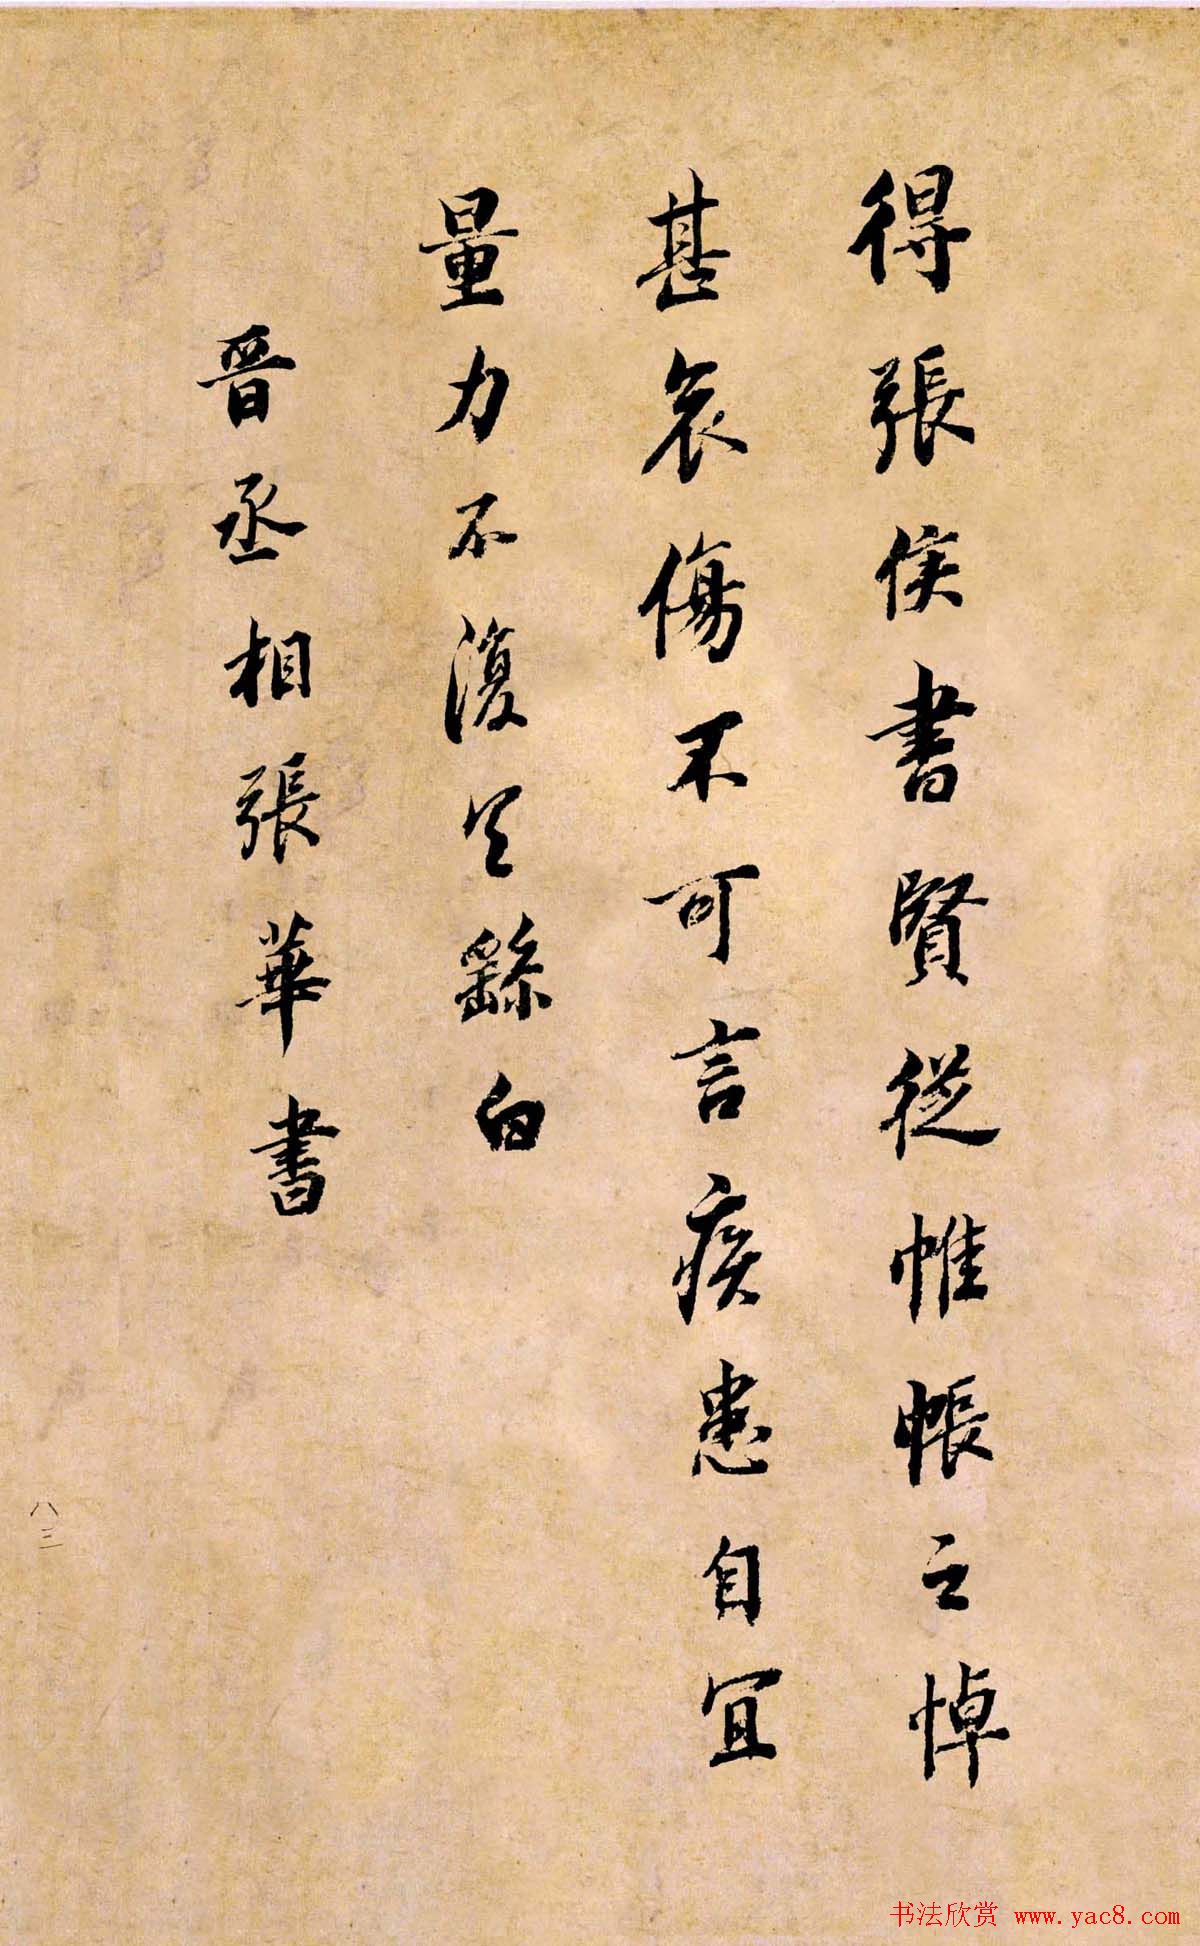 得張侯書賢從帷帳之悼
甚哀傷不可言疾患自宜
量力不復具繇白
晉丞相張華書
八三
书法欣赏 www.yac8.com